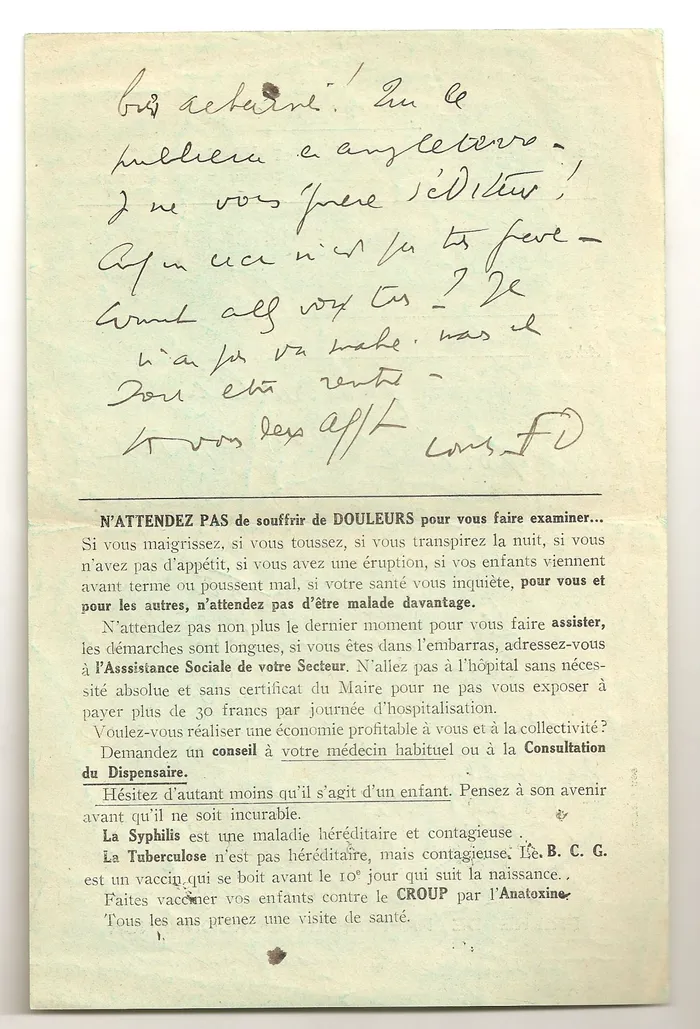 bien acharné ! On le
publiera en angleterre –
Je ne vois guère d'éditeur !
ceci n'est pas très grave –
Comment allez vous ? Je
n'ai pas vu mais il
Doit être rentré –
Et vous
N'ATTENDEZ PAS de souffrir de DOULEURS pour vous faire examiner...
Si vous maigrissez, si vous toussez, si vous transpirez la nuit, si vous
n'avez pas d'appétit, si vous avez une éruption, si vos enfants viennent
avant terme ou poussent mal, si votre santé vous inquiète, pour vous et
pour les autres, n'attendez pas d'être malade davantage.
N'attendez pas non plus le dernier moment pour vous faire assister,
les démarches sont longues, si vous êtes dans l'embarras, adressez-vous
à l'Asssistance Sociale de votre Secteur. N'allez pas à l'hôpital sans néces-
sité absolue et sans certificat du Maire pour ne pas vous exposer à
payer plus de 30 francs par journée d'hospitalisation.
Voulez-vous réaliser une économie profitable à vous et à la collectivité ?
Demandez un conseil à votre médecin habituel ou à la Consultation
du Dispensaire.
Hésitez d'autant moins qu'il s'agit d'un enfant. Pensez à son avenir
avant qu'il ne soit incurable.
La Syphilis est une maladie héréditaire et contagieuse.
La Tuberculose n'est pas héréditaire, mais contagieuse. Le B. C. G.
est un vaccin qui se boit avant le 10e jour qui suit la naissance.
Faites vacciner vos enfants contre le CROUP par l'Anatoxine.
Tous les ans prenez une visite de santé.